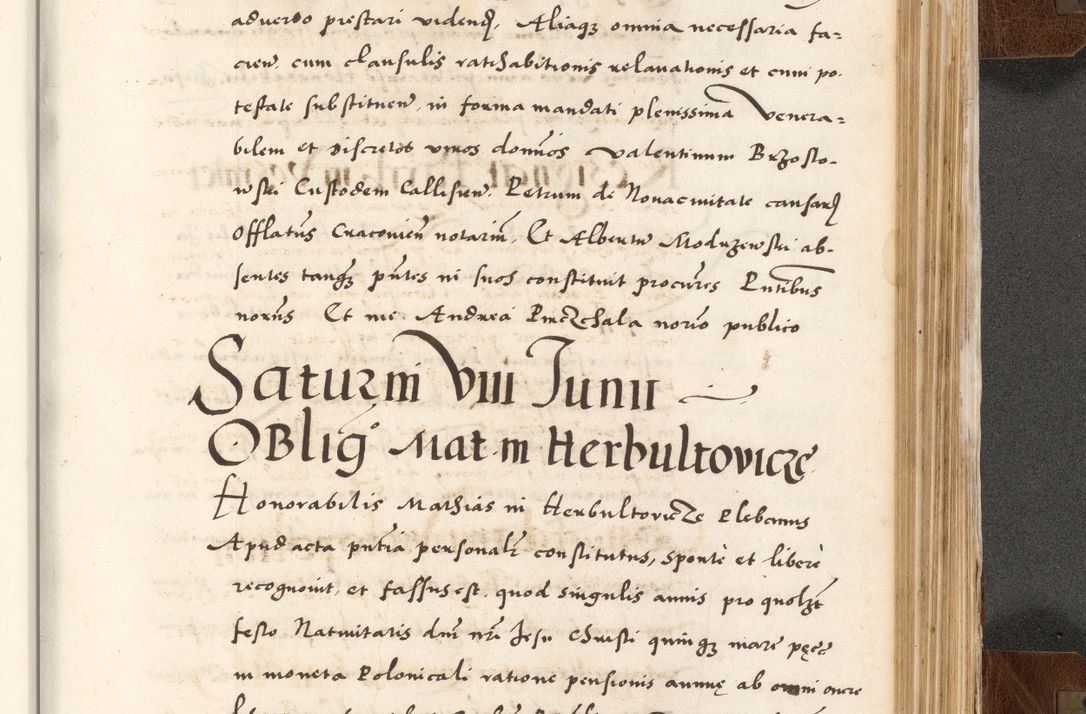 adverso prestari videnđ. Aliaqʒ omnia necessaria fa=
cien̄. cum clausulis ratihabitionis relavationis et cum po-
testate substituen̄. in forma mandati plenissima Venera=
bilem et discretos viros domi͞nos Valentinum Brzosto=
wski Custodem Callisien̄. Petrum de Novacivitate causarđ
Offlatus Cracovien̄ notariu͞m. Et Albertu͞ Modrzewski ab-
sentes tanqʒ pn͞tes in suos constituit procur͞es Pn͞tibus
nor͞iis Et me Andrea Przechala nor͞io publico
Saturni VIII Junii
Oblig° Mat. in Herbultovicze
Honorabilis Mathias in Herbultovicze Plebanus
Apud acta pn͞tia personalr͞ constitutus, sponte et libere
recognovit, et fassus est. quod singulis annis pro quolʒt
festo Nativitatis dni͞ nr͞i Jesu Christi quinqʒ marc͞ pecc͞
in moneta Polonicali ratione pensionis annuę ab omni onere